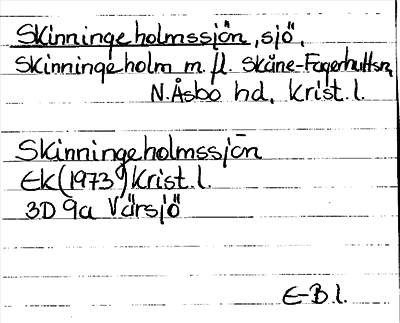 Skinningeholmssjön, sjö,
Skinningeholm m. fl. Skåne-Fagerhultsn,
N.Åsbo hd, Krist. l.
Skinningeholmssjön
Ek (1973) Krist. l.
3D 9a Värsjö
E-B l.